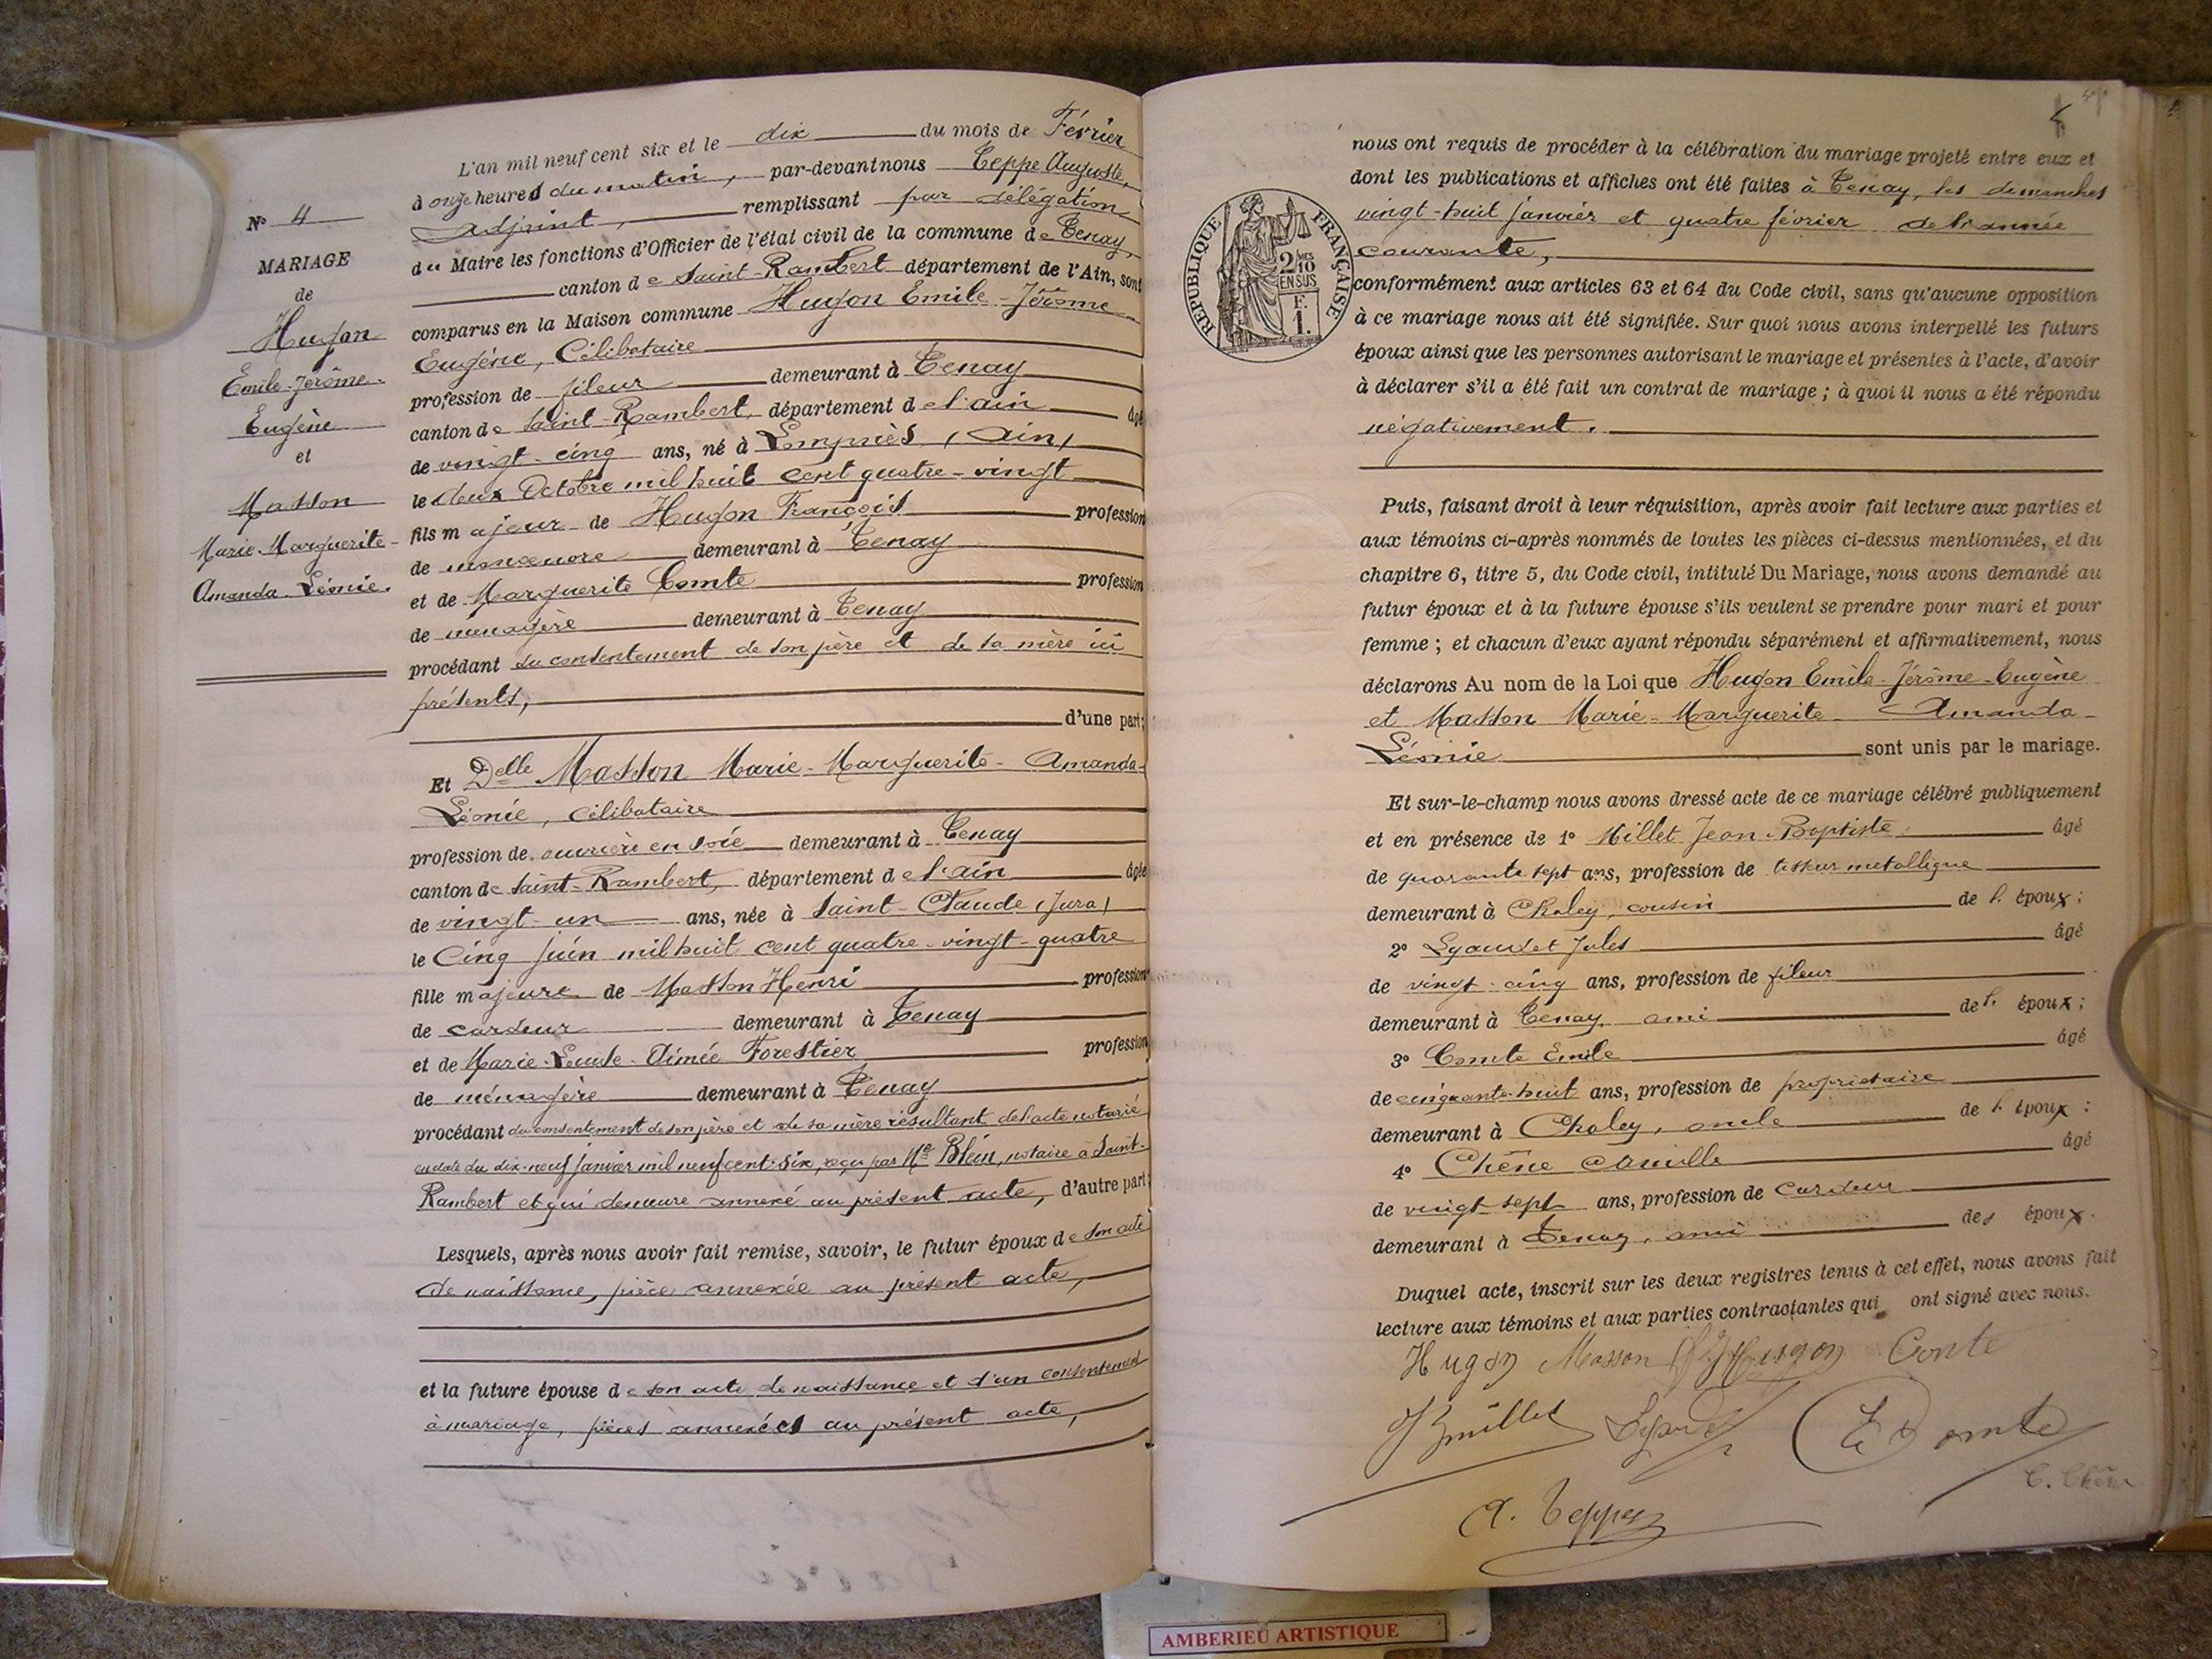 L'an mil neuf cent six et le dix du mois de Février
à onze heures du matin, par-devant nous Teppe Auguste,
Adjoint, remplissant par délégation
du Maire les fonctions d'Officier de l'état civil de la commune de Tenay,
canton de Saint-Rambert département de l'Ain, sont
comparus en la Maison commune Hugon Emile-Jérôme
Eugène, Célibataire
profession de fileur demeurant à Tenay
canton de Saint-Rambert, département de l'ain âgé
de vingt-cinq ans, né à Lompnès (Ain)
le deux Octobre mil huit cent quatre-vingt
fils majeur de Hugon François profession
de manœuvre demeurant à Tenay
et de Marguerite Comte profession
de ménagère demeurant à Tenay
procédant du consentement de son père et de sa mère ici
présents,
d'une part;
Et Delle Masson Marie-Marguerite-Amanda-
Léonie, célibataire
profession de ouvrière en soie demeurant à Tenay
canton de Saint-Rambert, département de l'ain âgée
de vingt-un ans, née à Saint-Claude (Jura)
le Cinq Juin mil huit cent quatre-vingt-quatre
fille majeure de Masson Henri profession
de cardeur demeurant à Tenay
et de Marie-Louise-Aimée Forestier profession
de ménagère demeurant à Tenay
procédant du consentement de son père et de sa mère résultant de l'acte notarié
en date du dix-neuf janvier mil neuf cent-six, reçu par Me Blein, notaire à Saint-
Rambert et qui demeure annexé au présent acte, d'autre part;
Lesquels, après nous avoir fait remise, savoir, le futur époux de son acte
de naissance, pièce annexée au présent acte,
et la future épouse de son acte de naissance et d'un consentement
à mariage, pièces annexées au présent acte,
N° 4
MARIAGE
de
Hugon
Emile-Jérôme-
Eugène
et
Masson
Marie-Marguerite-
Amanda-Léonie.
nous ont requis de procéder à la célébration du mariage projeté entre eux et
dont les publications et affiches ont été faites à Tenay, les dimanches
vingt-huit janvier et quatre février de l'année
courante,
conformément aux articles 63 et 64 du Code civil, sans qu'aucune opposition
à ce mariage nous ait été signifiée. Sur quoi nous avons interpellé les futurs
époux ainsi que les personnes autorisant le mariage et présentes à l'acte, d'avoir
à déclarer s'il a été fait un contrat de mariage ; à quoi il nous a été répondu
négativement.
Puis, faisant droit à leur réquisition, après avoir fait lecture aux parties et
aux témoins ci-après nommés de toutes les pièces ci-dessus mentionnées, et du
chapitre 6, titre 5, du Code civil, intitulé Du Mariage, nous avons demandé au
futur époux et à la future épouse s'ils veulent se prendre pour mari et pour
femme ; et chacun d'eux ayant répondu séparément et affirmativement, nous
déclarons Au nom de la Loi que Hugon Emile-Jérôme-Eugène
et Masson Marie-Marguerite-Amanda-
Léonie sont unis par le mariage.
Et sur-le-champ nous avons dressé acte de ce mariage célébré publiquement
et en présence de 1° Millet Jean-Baptiste, âgé
de quarante sept ans, profession de tisseur metallique
demeurant à Chaley, cousin de l'époux ;
2° Lyaudet Jules âgé
de vingt-cinq ans, profession de fileur
demeurant à Tenay, ami de l'époux ;
3° Comte Emile âgé
de cinquante-huit ans, profession de propriétaire
demeurant à Chaley, oncle de l'époux ;
4° Chêne Camille âgé
de vingt-sept ans, profession de cardeur
demeurant à Tenay, ami des époux.
Duquel acte, inscrit sur les deux registres tenus à cet effet, nous avons fait
lecture aux témoins et aux parties contractantes qui ont signé avec nous.
Hugon Masson Hugon Conte
Millet E Comte
C. Chêne
A. Teppe
RÉPUBLIQUE FRANÇAISE
2/10
EN SUS
F.
1.
AMBERIEU ARTISTIQUE